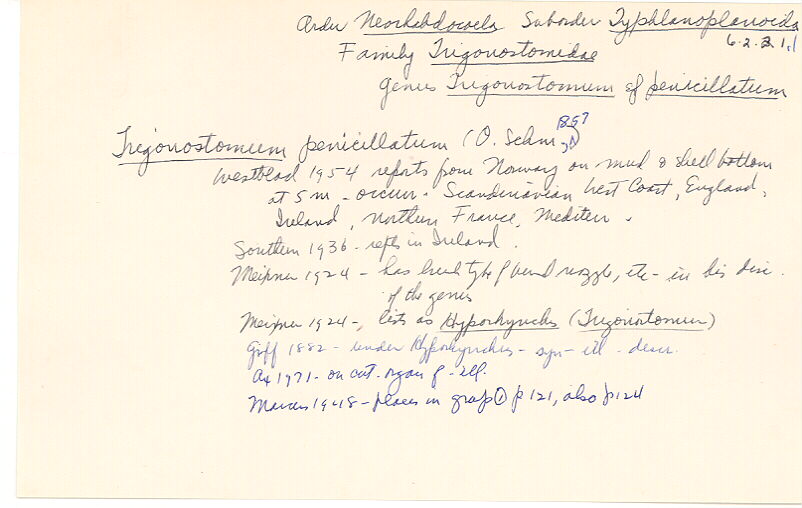 Order Neorhabdocoela Suborder Typhlanoplanoida
6.2.2.1.1
Family Trigonostomidae
Genus Trigonostomum sp penicillatum
Trigonostomum penicillatum (O. Schm, 1857)
Westblad 1954 reports from Norway on mud & shell bottom
at 5 m - occur. Scandinavian West Coast, England,
Ireland, Northern France, Mediterr.
Southern 1936 - repts in Ireland.
Meixner 1924 - has type of nozzle, etc - in his disc.
of the genus
Meixner 1924 -, lists as Hyporhynchus (Trigonostomum)
Graff 1882 - under Hyporhynchus - syn - ill - descr.
Ax 1971 - on cut. organ of - Ill.
Marcus 1948 - places in group ① p 121, also p 124